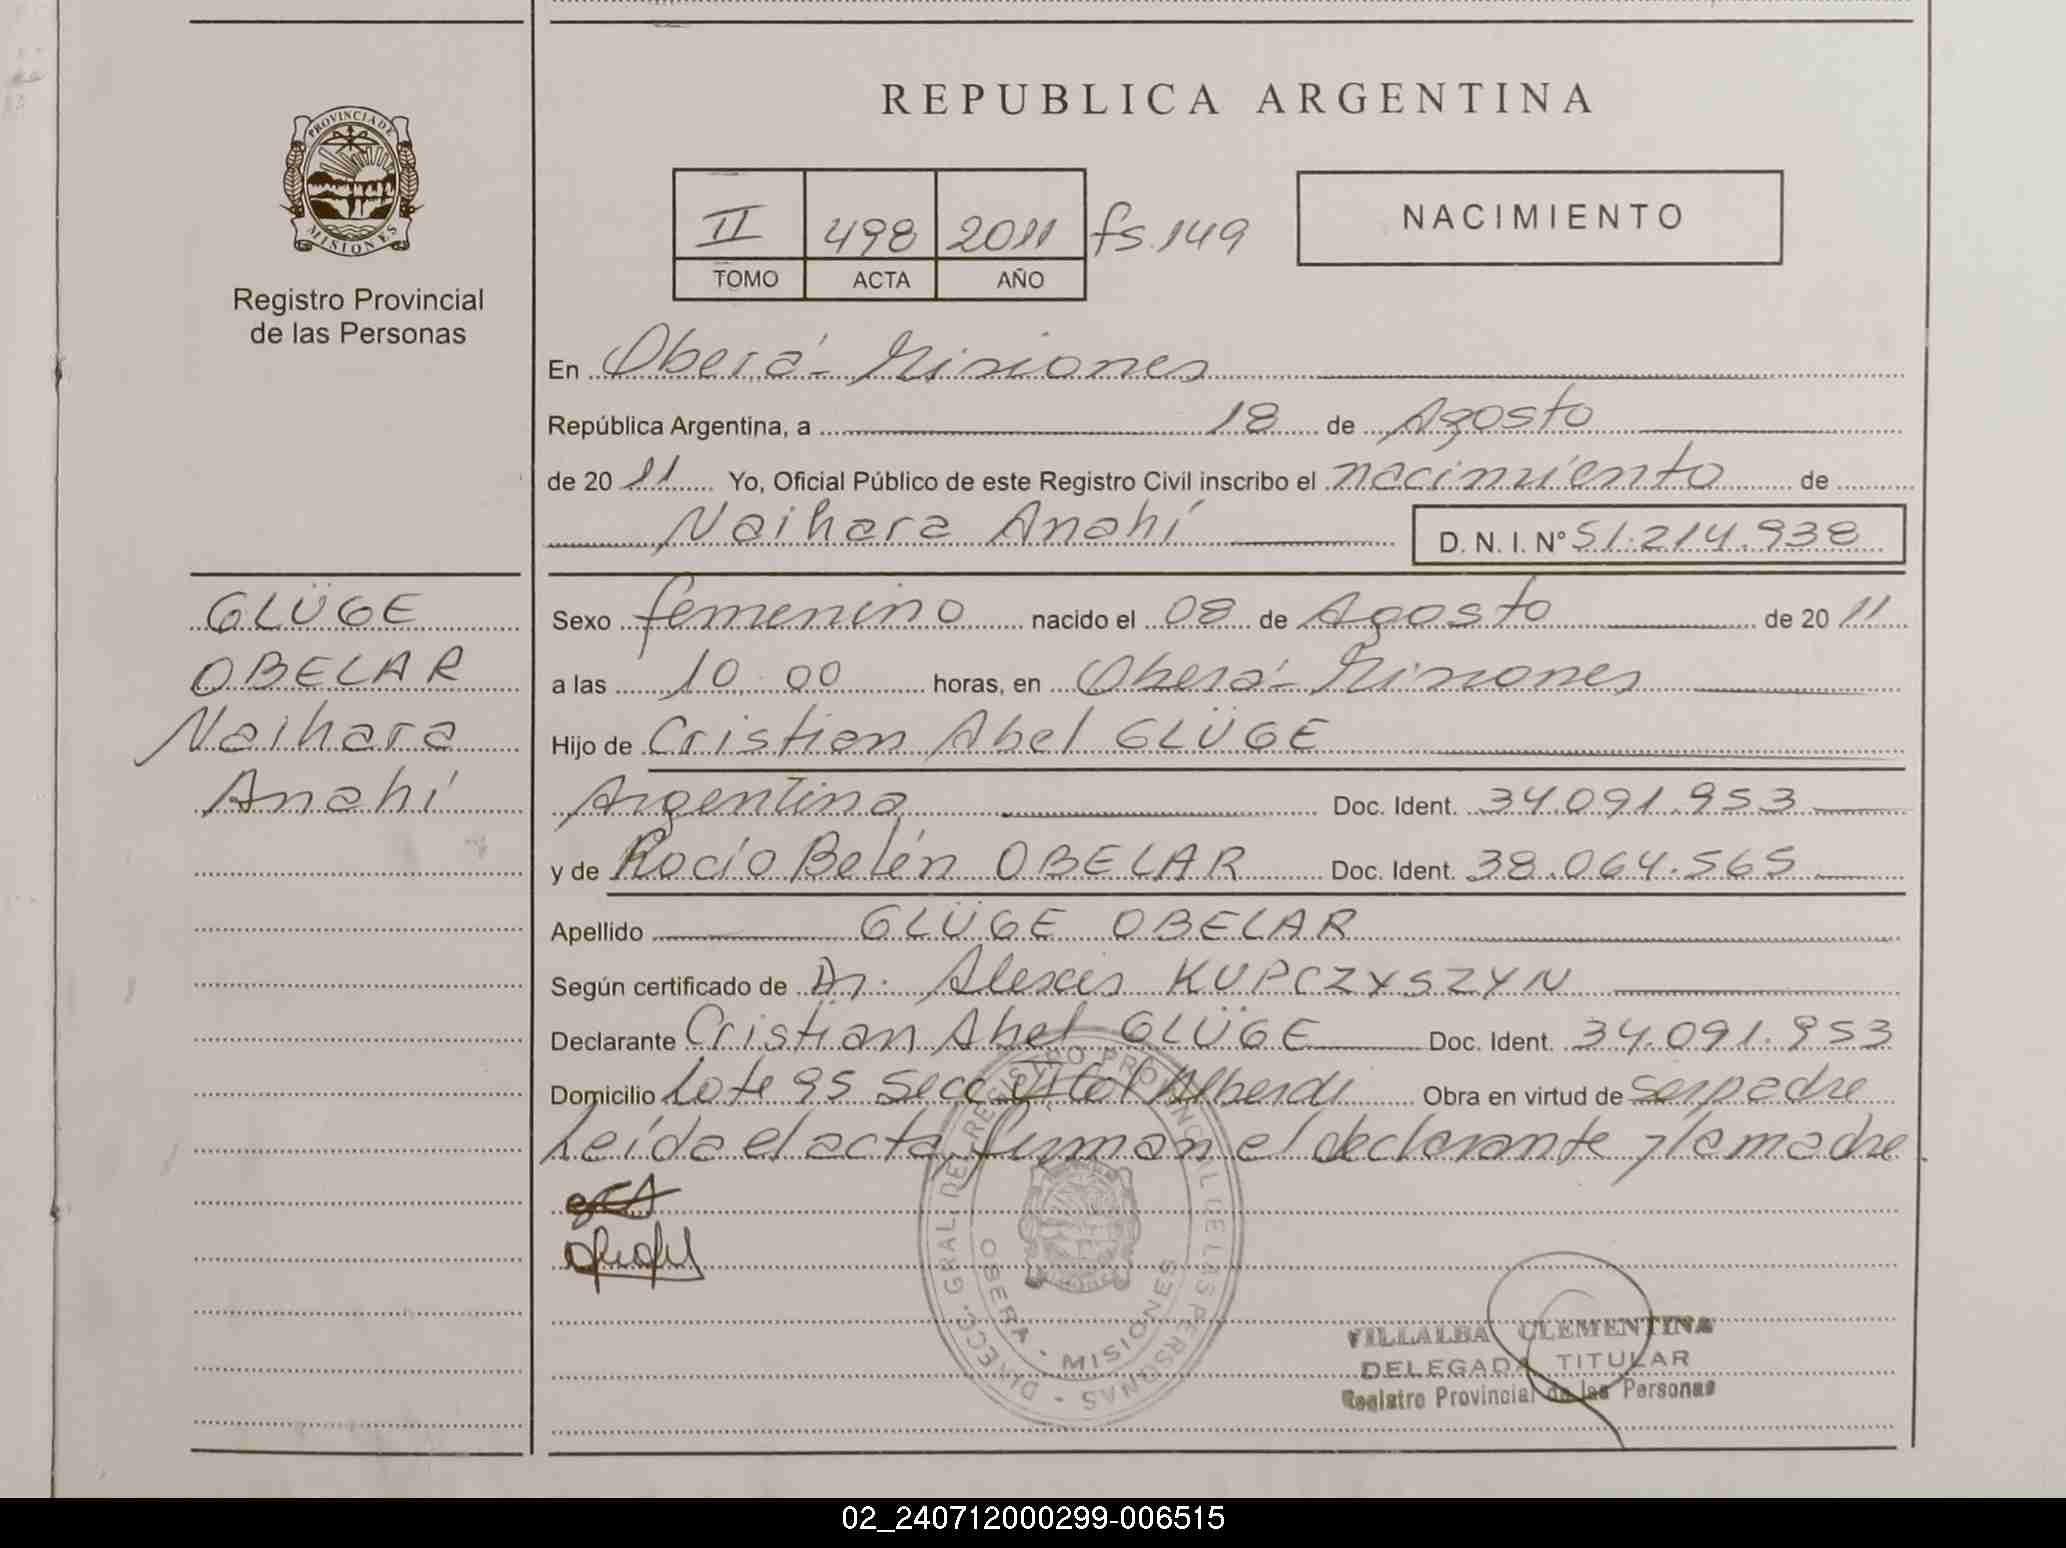 REPUBLICA ARGENTINA
PROVINCIA DE
MISIONES
Registro Provincial
de las Personas
II 498 2011 fs. 149
TOMO ACTA AÑO
NACIMIENTO
En Oberá - Misiones
República Argentina, a 18 de Agosto
de 20 11 Yo, Oficial Público de este Registro Civil inscribo el nacimiento de
Naihara Anahí D. N. I. Nº 51.214.938
GLÜGE
OBELAR
Naihara
Anahí
Sexo femenino nacido el 08 de Agosto de 20 11
a las 10 00 horas, en Oberá - Misiones
Hijo de Cristian Abel GLÜGE
Argentina Doc. Ident. 34.091.953
y de Rocío Belén OBELAR Doc. Ident. 38.064.565
Apellido GLÜGE OBELAR
Según certificado de Dr. Alexis KUPCZYSZYN
Declarante Cristian Abel GLÜGE Doc. Ident. 34.091.953
Domicilio Lote 95 Secc Alberdi Obra en virtud de ser padre
Leída el acta firman el declarante y la madre
DIRECC. GRAL. DEL REGISTRO PROVINCIAL DE LAS PERSONAS
OBERA - MISIONES
VILLALBA CLEMENTINA
DELEGADA TITULAR
Registro Provincial de las Personas
02_240712000299-006515